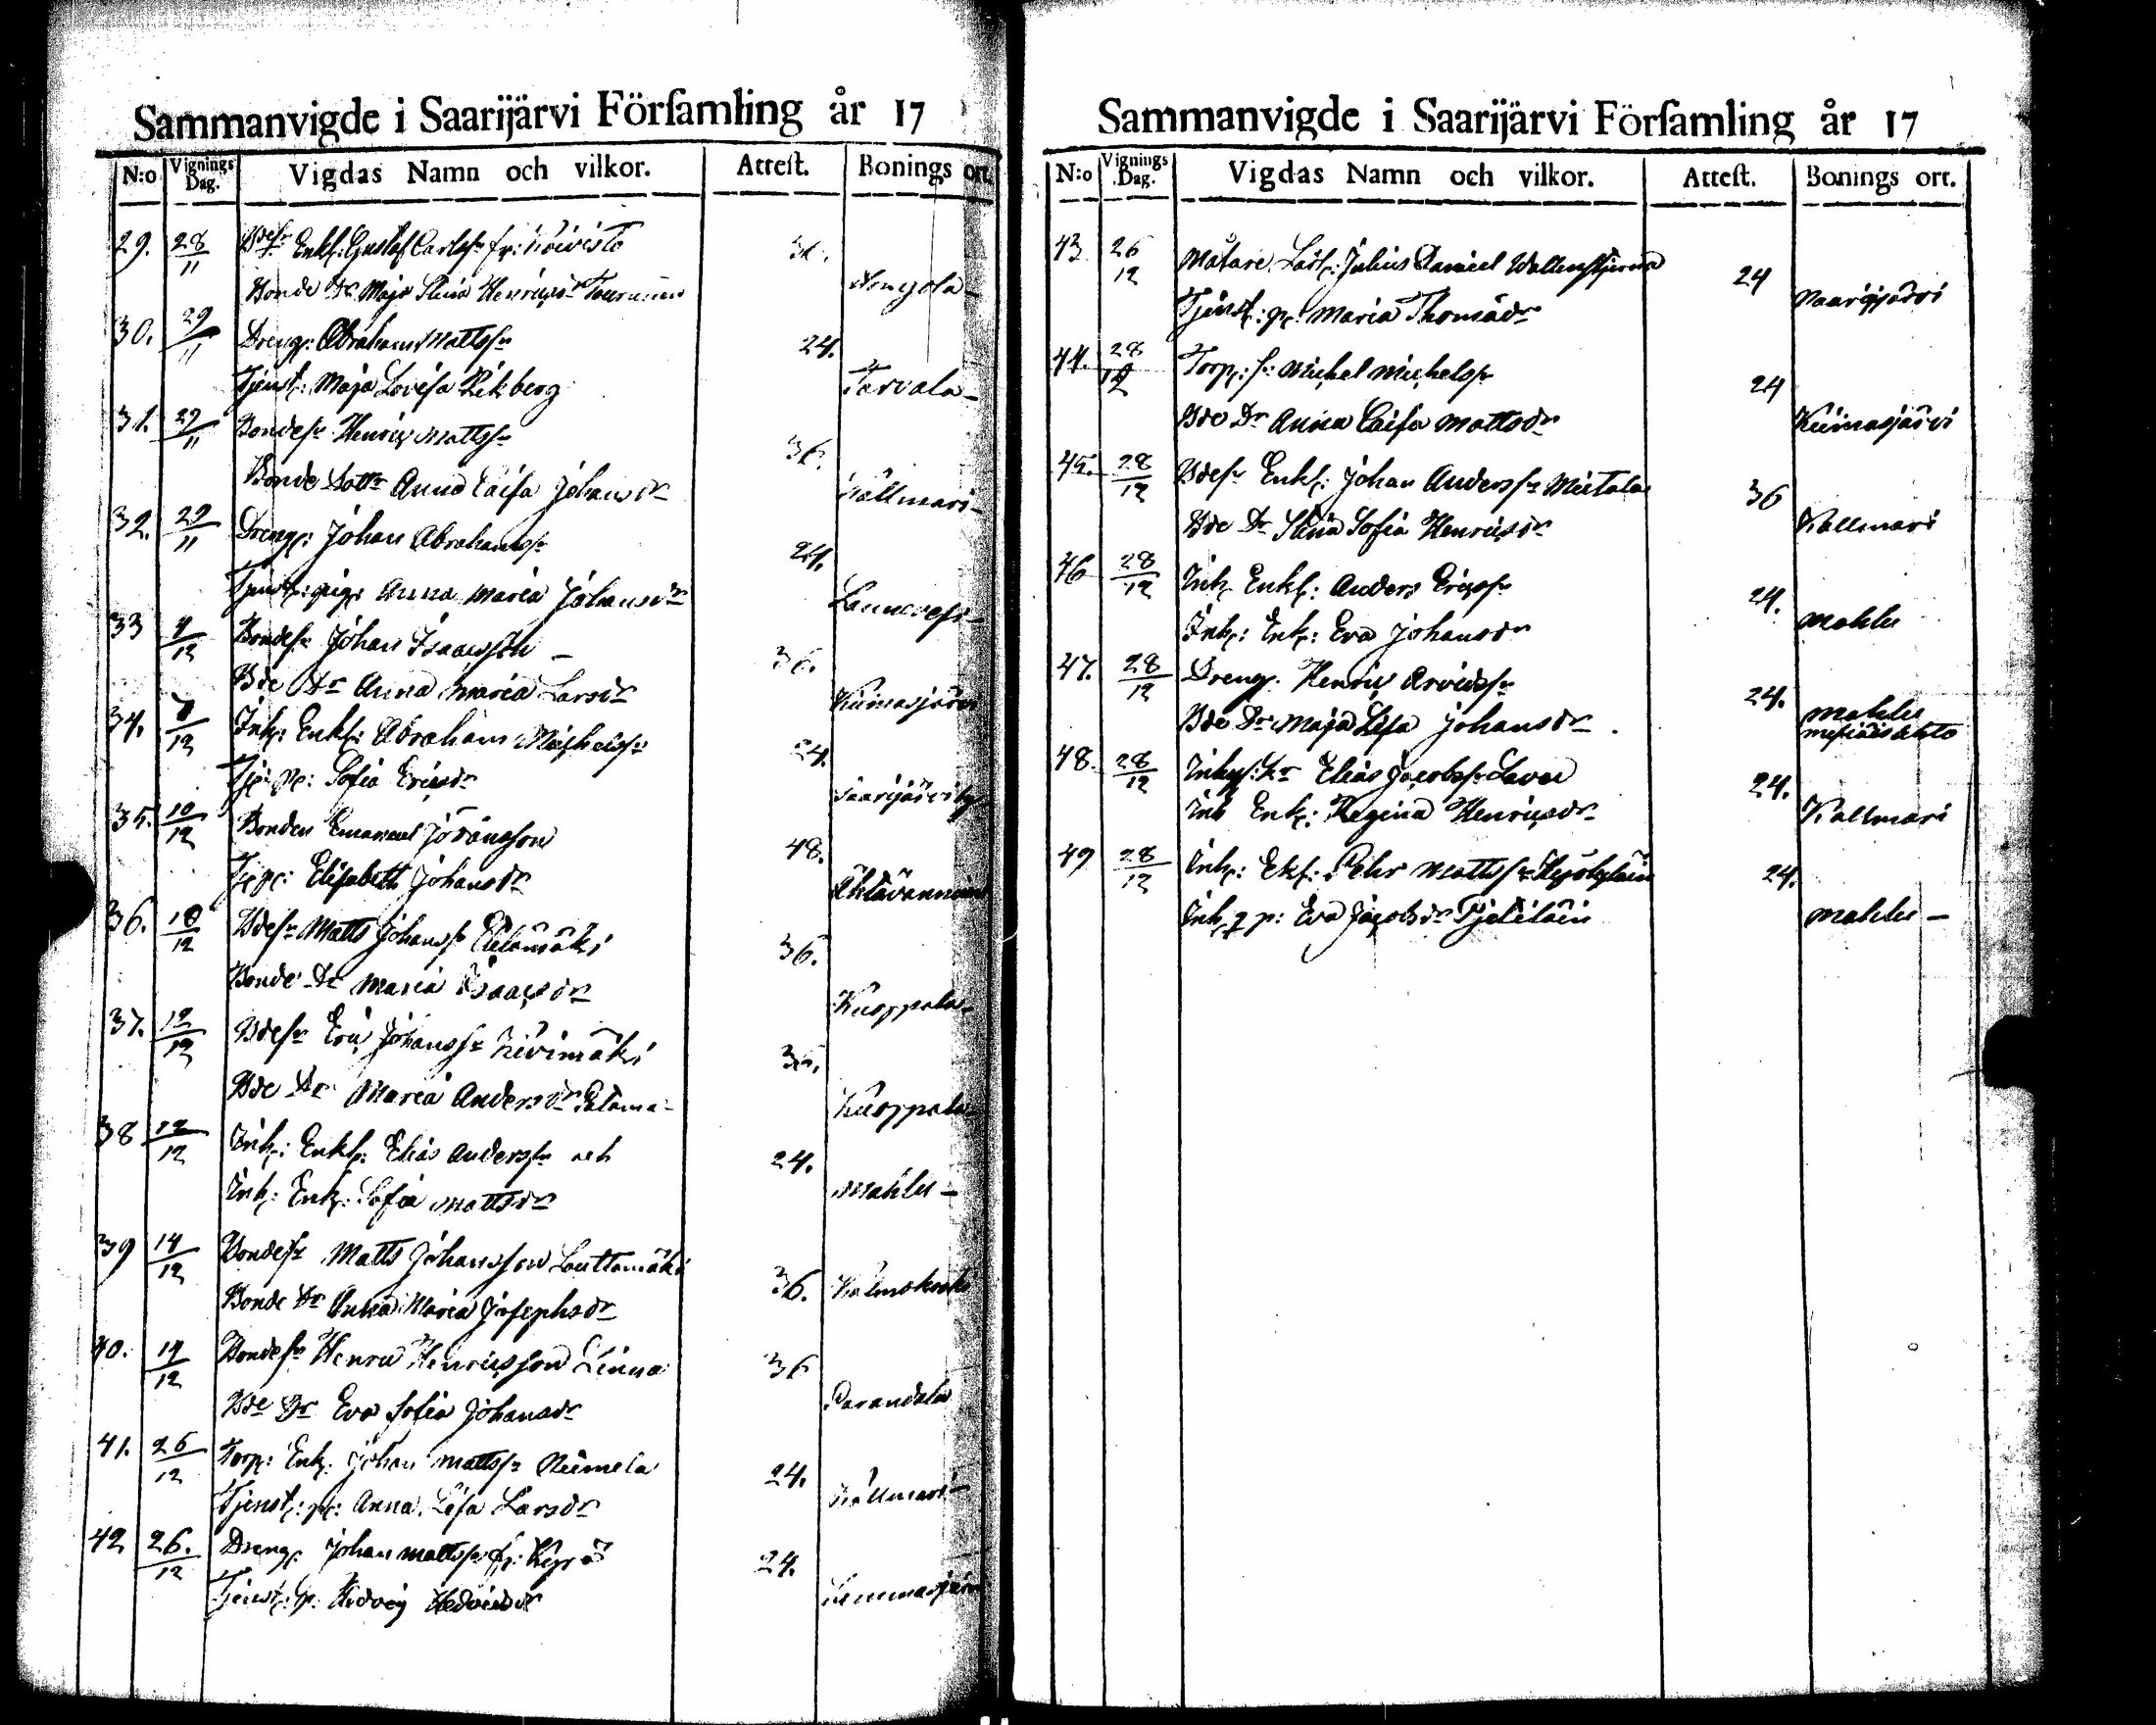 Sammanvigde i Saarijärvi Förſamling år 17
N:o Vignings Dag. Vigdas Namn och vilkor. Atteſt. Bonings ort.
29. 28/11 Bdesn Enkl: Gustaf Carlssn fr: Koivisto 36.
Bonde Dr Maja Stina Henricsdr
30. 29/11 Dreng: Abraham Mattssn 24.
Tjenst: Maja Lovisa Ekberg Tarvala
31. 29/11 Bondesn Henric Mattssn 36.
Bonde Dottr Anna Caisa Johansdr Kallmari
32. 29/11 Dreng: Johan Abrahamssn 24.
Tjenst: pig: Anna Maria Johansdr Lannevesi
33 4/12 Bondesn Johan Isaacsson 36.
Bde Dr Anna Maria Larsdr Kiimasjärvi
34. 8/12 Inh: Enkl: Abraham Michelssn 24.
Tj: p: Sofia Ericsdr Saarijärvi by
35. 10/12 Bonden Emanuel Johansson 48.
Tj: p: Elisabeth Johansdr
36. 10/12 Bdesn Matts Johanss 36.
Bonde Dr Maria Isaacsdr Kuoppala
37. 12/12 Bdesn Eric Johanssn Kivimäki 36.
Bde Dr Maria Andersdr Kuoppala
38 12/12 Inh: Enkl: Elias Anderssn och 24.
Inh: Enk: Sofia Mattsdr Mahlu
39 14/12 Bondesn Matts Johansson Lauttamäki 36.
Bonde Dr Anna Maria Josephsdr Kalmokoski
40. 14/12 Bondesn Henric Henricsson Linna 36
Bde Dr Eva Sofia Johansdr Parandala
41. 26/12 Torp: Enk: Johan Mattssn Niemela 24.
Tjenst: p: Anna Lisa Larsdr Kallmari
42 26./12 Dreng: Johan Mattssn fr: Kyrö 24.
Tjenst: p: Hedvig
Sammanvigde i Saarijärvi Förſamling år 17
N:o Vignings Dag. Vigdas Namn och vilkor. Atteſt. Bonings ort.
43 26/12 Målare Lärl: Julius Daniel Wallenstjerna 24
Tjenst: p: Maria Thomædr Saarijärvi
44. 28/12 Torp: sn Michel Michelssn 24
Bde Dr Anna Caisa Mattsdr Kiimasjärvi
45. 28/12 Bdesn Enkl: Johan Anderssn 36
Bde Dr Stina Sofia Henricsdr Kallmari
46 28/12 Inh Enkl: Anders Ericssn 24.
Inh: Enk: Eva Johansdr Mahlu
47. 28/12 Dreng. Henric Arvidssn 24.
Bde Dr Maja Lisa Johansdr. Mahlu
48. 28/12 Inhys: Kr Elias Jacobssn 24.
Inh Enk: Regina Henricsdr Kallmari
49 28/12 Inh: Ekl: Pehr Mattssn 24.
Inh q p: Eva Jacobsdr Mahlu